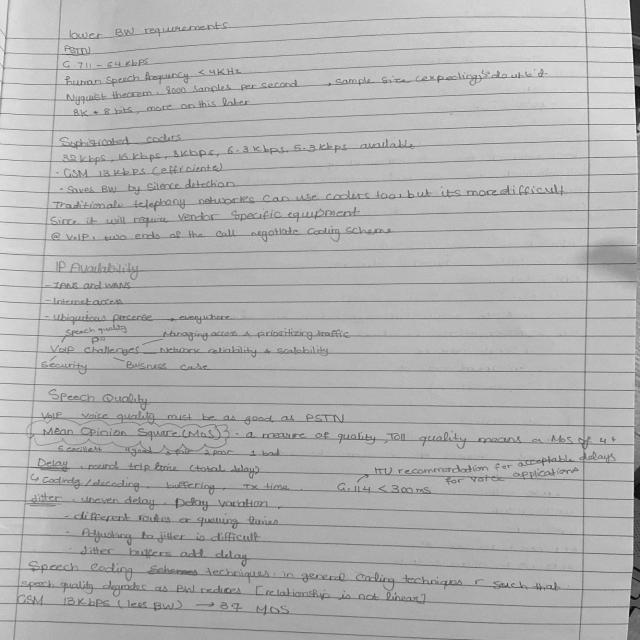 lower BW requirements
PSTN
G.711 - 64 Kbps
human speech frequency < 4KHz
Nyquist theorem, 8000 samples per second → sample size (expecting) is double'd
8K * 8 bits, more on this later
Sophisticated coders
32 Kbps, 16 Kbps, 8Kbps, 6.3 Kbps, 5.3 Kbps available
- GSM 13 Kbps (efficiente)
- Saves BW by silence detection
Traditional telephony networks can use coders too, but its more difficult
Since it will require vendor specific equipment
@ VoIP, two ends of the call negotiate coding scheme
IP Availability
- LANS and WANS
- Internet access
- Ubiquitous presense → everywhere
speech quality
Managing access & prioritizing traffic
VoIP challenges Network reliability & scalability
Security Business case
Speech Quality
VoIP voice quality must be as good as PSTN
Mean Opinion Square (MOS) - a measure of quality, Toll quality means a MOS of 4+
5 excellent 4 good 3 fair 2 poor 1 bad
Delay, round trip time (total delay)
ITU recommendation for acceptable delays for voice applications
↳ Coding/decoding, buffering, tx time. G.114 < 300ms
Jitter, uneven delay, Delay variation,
- different routes or queuing times
- Adjusting to jitter is difficult
- Jitter buffers add delay
Speech Coding techniques: in general coding techniques r such that
speech quality degrades as BW reduces [relationship is not linear]
GSM 13Kbps (less BW) → 3.7 MOS